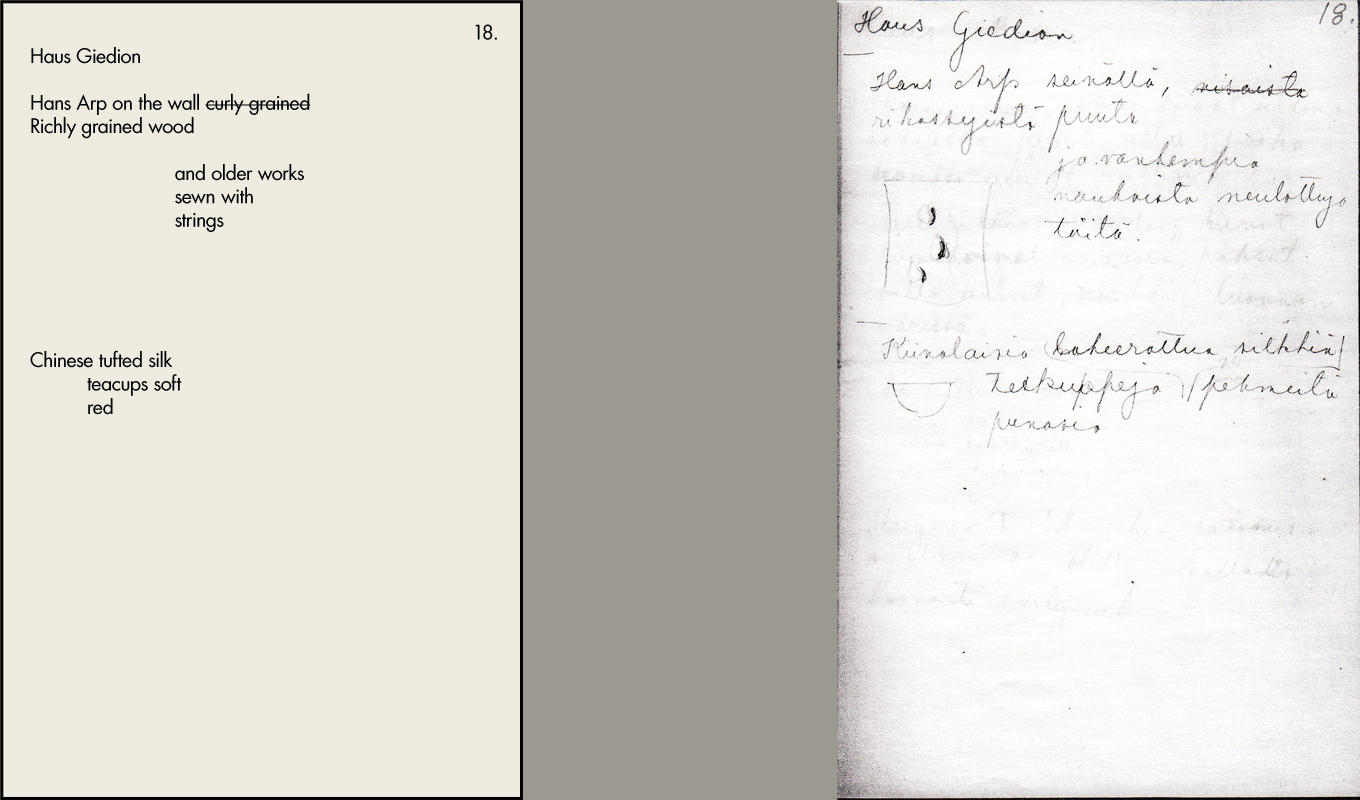 18.
Haus Giedion
Hans Arp on the wall curly grained
Richly grained wood
and older works
sewn with
strings
Chinese tufted silk
teacups soft
red
18.
Haus Giedion
Hans Arp seinällä, visaista
rikassyistä puuta
ja vanhempia
nauhoista neulottuja
töitä.
Kiinalaisia silkkiä
teekuppeja pehmeitä
punasia